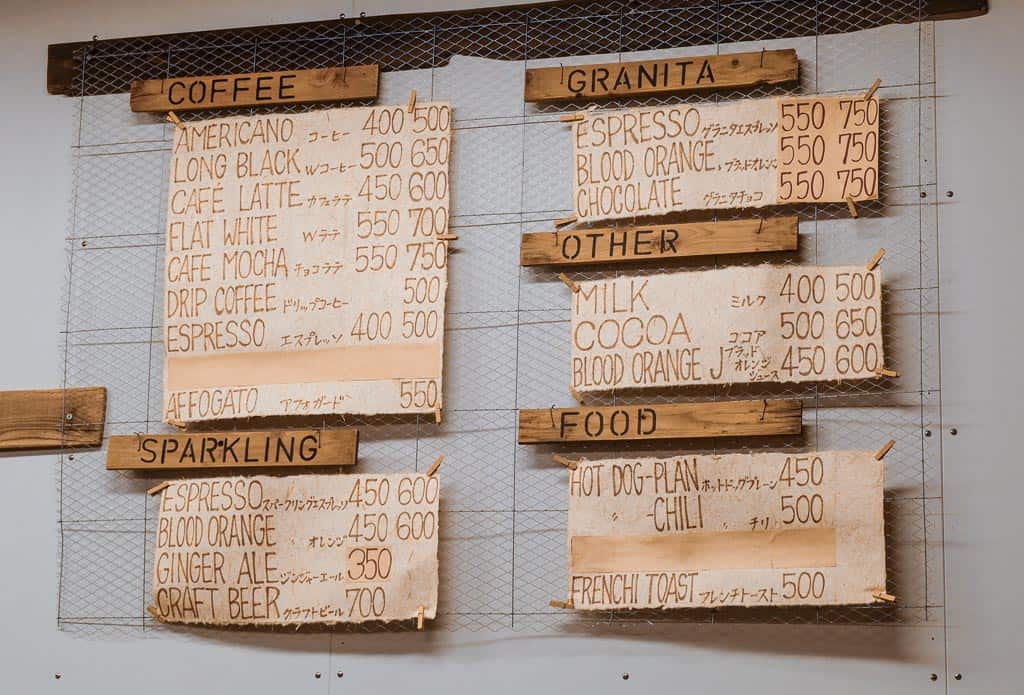 COFFEE
AMERICANO コーヒー 400 500
LONG BLACK Wコーヒー 500 650
CAFÉ LATTE カフェラテ 450 600
FLAT WHITE Wラテ 550 700
CAFE MOCHA チョコラテ 550 750
DRIP COFFEE ドリップコーヒー 500
ESPRESSO エスプレッソ 400 500
AFFOGATO アフォガード 550
SPARKLING
ESPRESSO スパークリングエスプレッソ 450 600
BLOOD ORANGE オレンジ 450 600
GINGER ALE ジンジャーエール 350
CRAFT BEER クラフトビール 700
GRANITA
ESPRESSO グラニタエスプレッソ 550 750
BLOOD ORANGE 〃 ブラッドオレンジ 550 750
CHOCOLATE グラニタチョコ 550 750
OTHER
MILK ミルク 400 500
COCOA ココア 500 650
BLOOD ORANGE J ブラッドオレンジジュース 450 600
FOOD
HOT DOG-PLAN ホットドッグプレーン 450
〃 -CHILI チリ 500
FRENCHI TOAST フレンチトースト 500